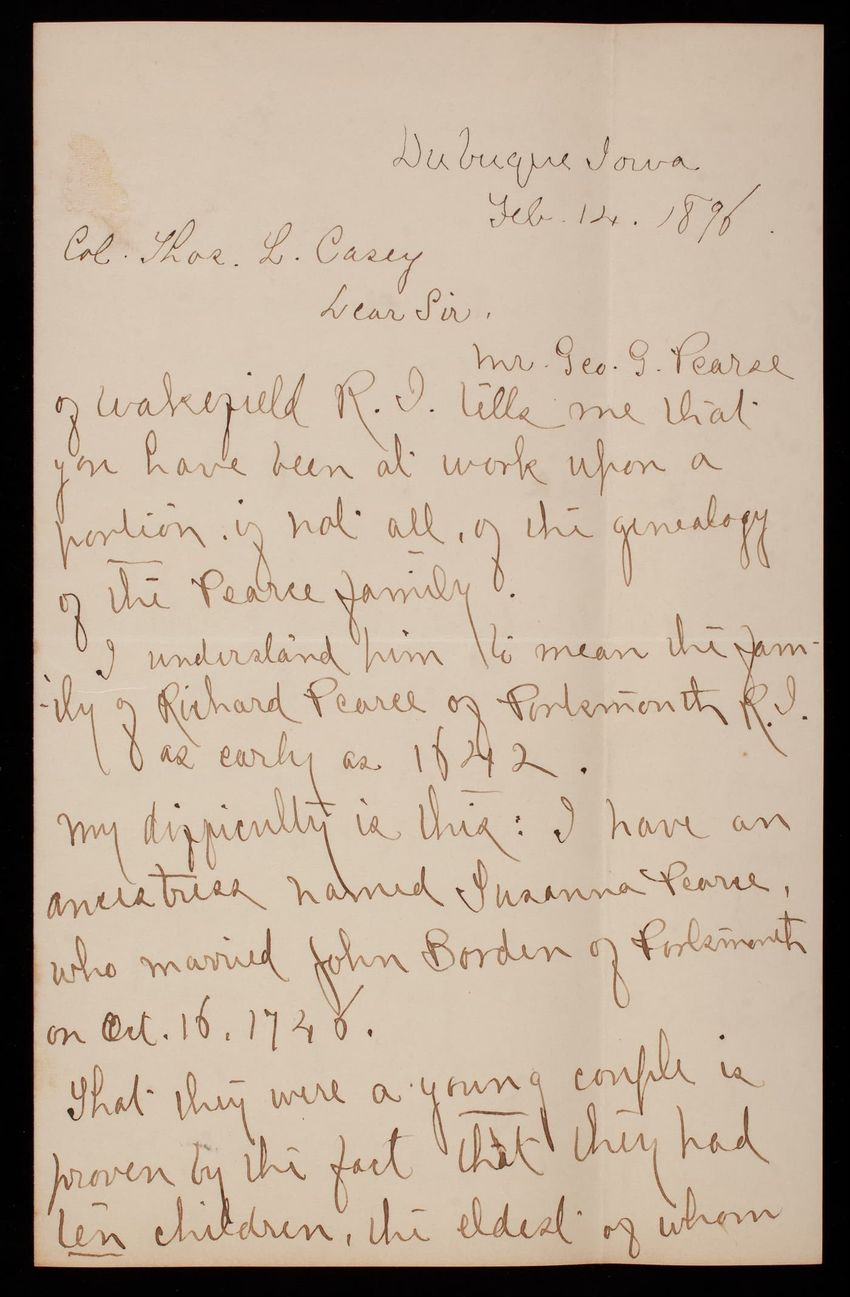 Dubuque Iowa
Feb. 14. 1896.
Col. Thos. L. Casey
Dear Sir,
Mr. Geo. G. Pearse
of Wakefield R. I. tells me that
you have been at work upon a
portion, if not all, of the genealogy
of the Pearce family.
I understand him to mean the fam-
-ily of Richard Pearce of Portsmouth R. I.
as early as 1642.
My difficulty is this: I have an
ancestress named Susanna Pearce,
who married John Borden of Portsmouth
on Oct. 16. 1746.
That they were a young couple is
proven by the fact that they had
ten children, the eldest of whom